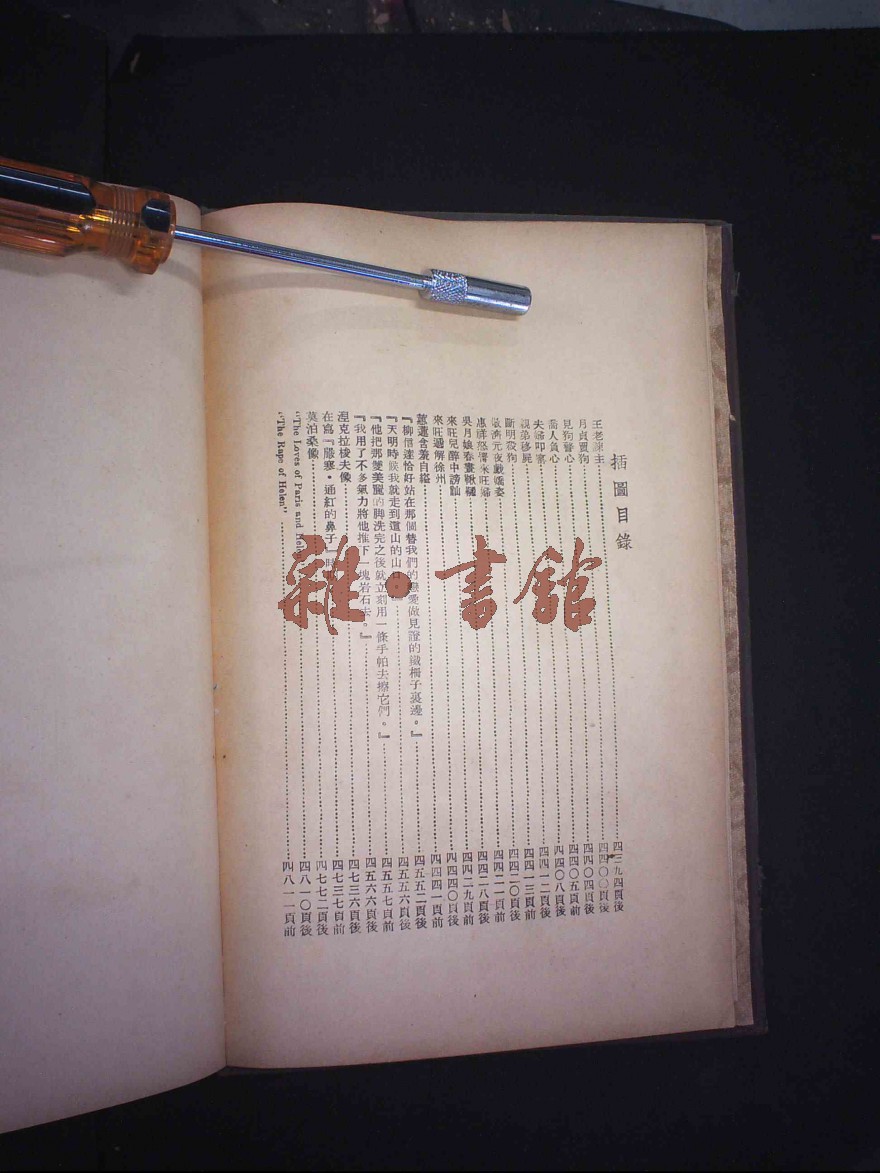 插圖目錄
王老諫主……四三九四頁後
月貞買狗……四四〇〇頁後
見狗警心……四四〇四頁後
喬人負心……四四〇五頁前
夫婦叩窰……四四〇八頁後
親弟移屍……四四一二頁後
斷明殺狗……四四一三頁前
敬濟元夜戲嬌姿……四四二〇頁後
惠祥怒詈來旺婦……四四二一頁前
吳月娘春晝鞦韆……四四二八頁後
來旺兒醉中謗訕……四四二九頁前
來旺遞解徐州……四四四〇頁後
蕙蓮含羞自縊……四四四一頁前
『柳僧達恰好站在那個替我們的戀愛做見證的鐵柵子裏邊。』……四五五二頁後
『天明時候我就走到這山的山……四五五六頁後
『他把那雙美麗的脚洗完之後就立刻用一條手帕去擦它們。』……四五五七頁前
『我用了不多氣力將他推下一塊岩石去。』……四五六六頁後
湼克拉梭夫像……四七三六頁後
在寫『嚴寒·通紅的鼻子』時……四七三七頁前
莫泊桑像……四七七二頁後
"The Loves of Paris and Helen"……四八一〇頁後
"The Rape of Helen"……四八一一頁前
雜·書館